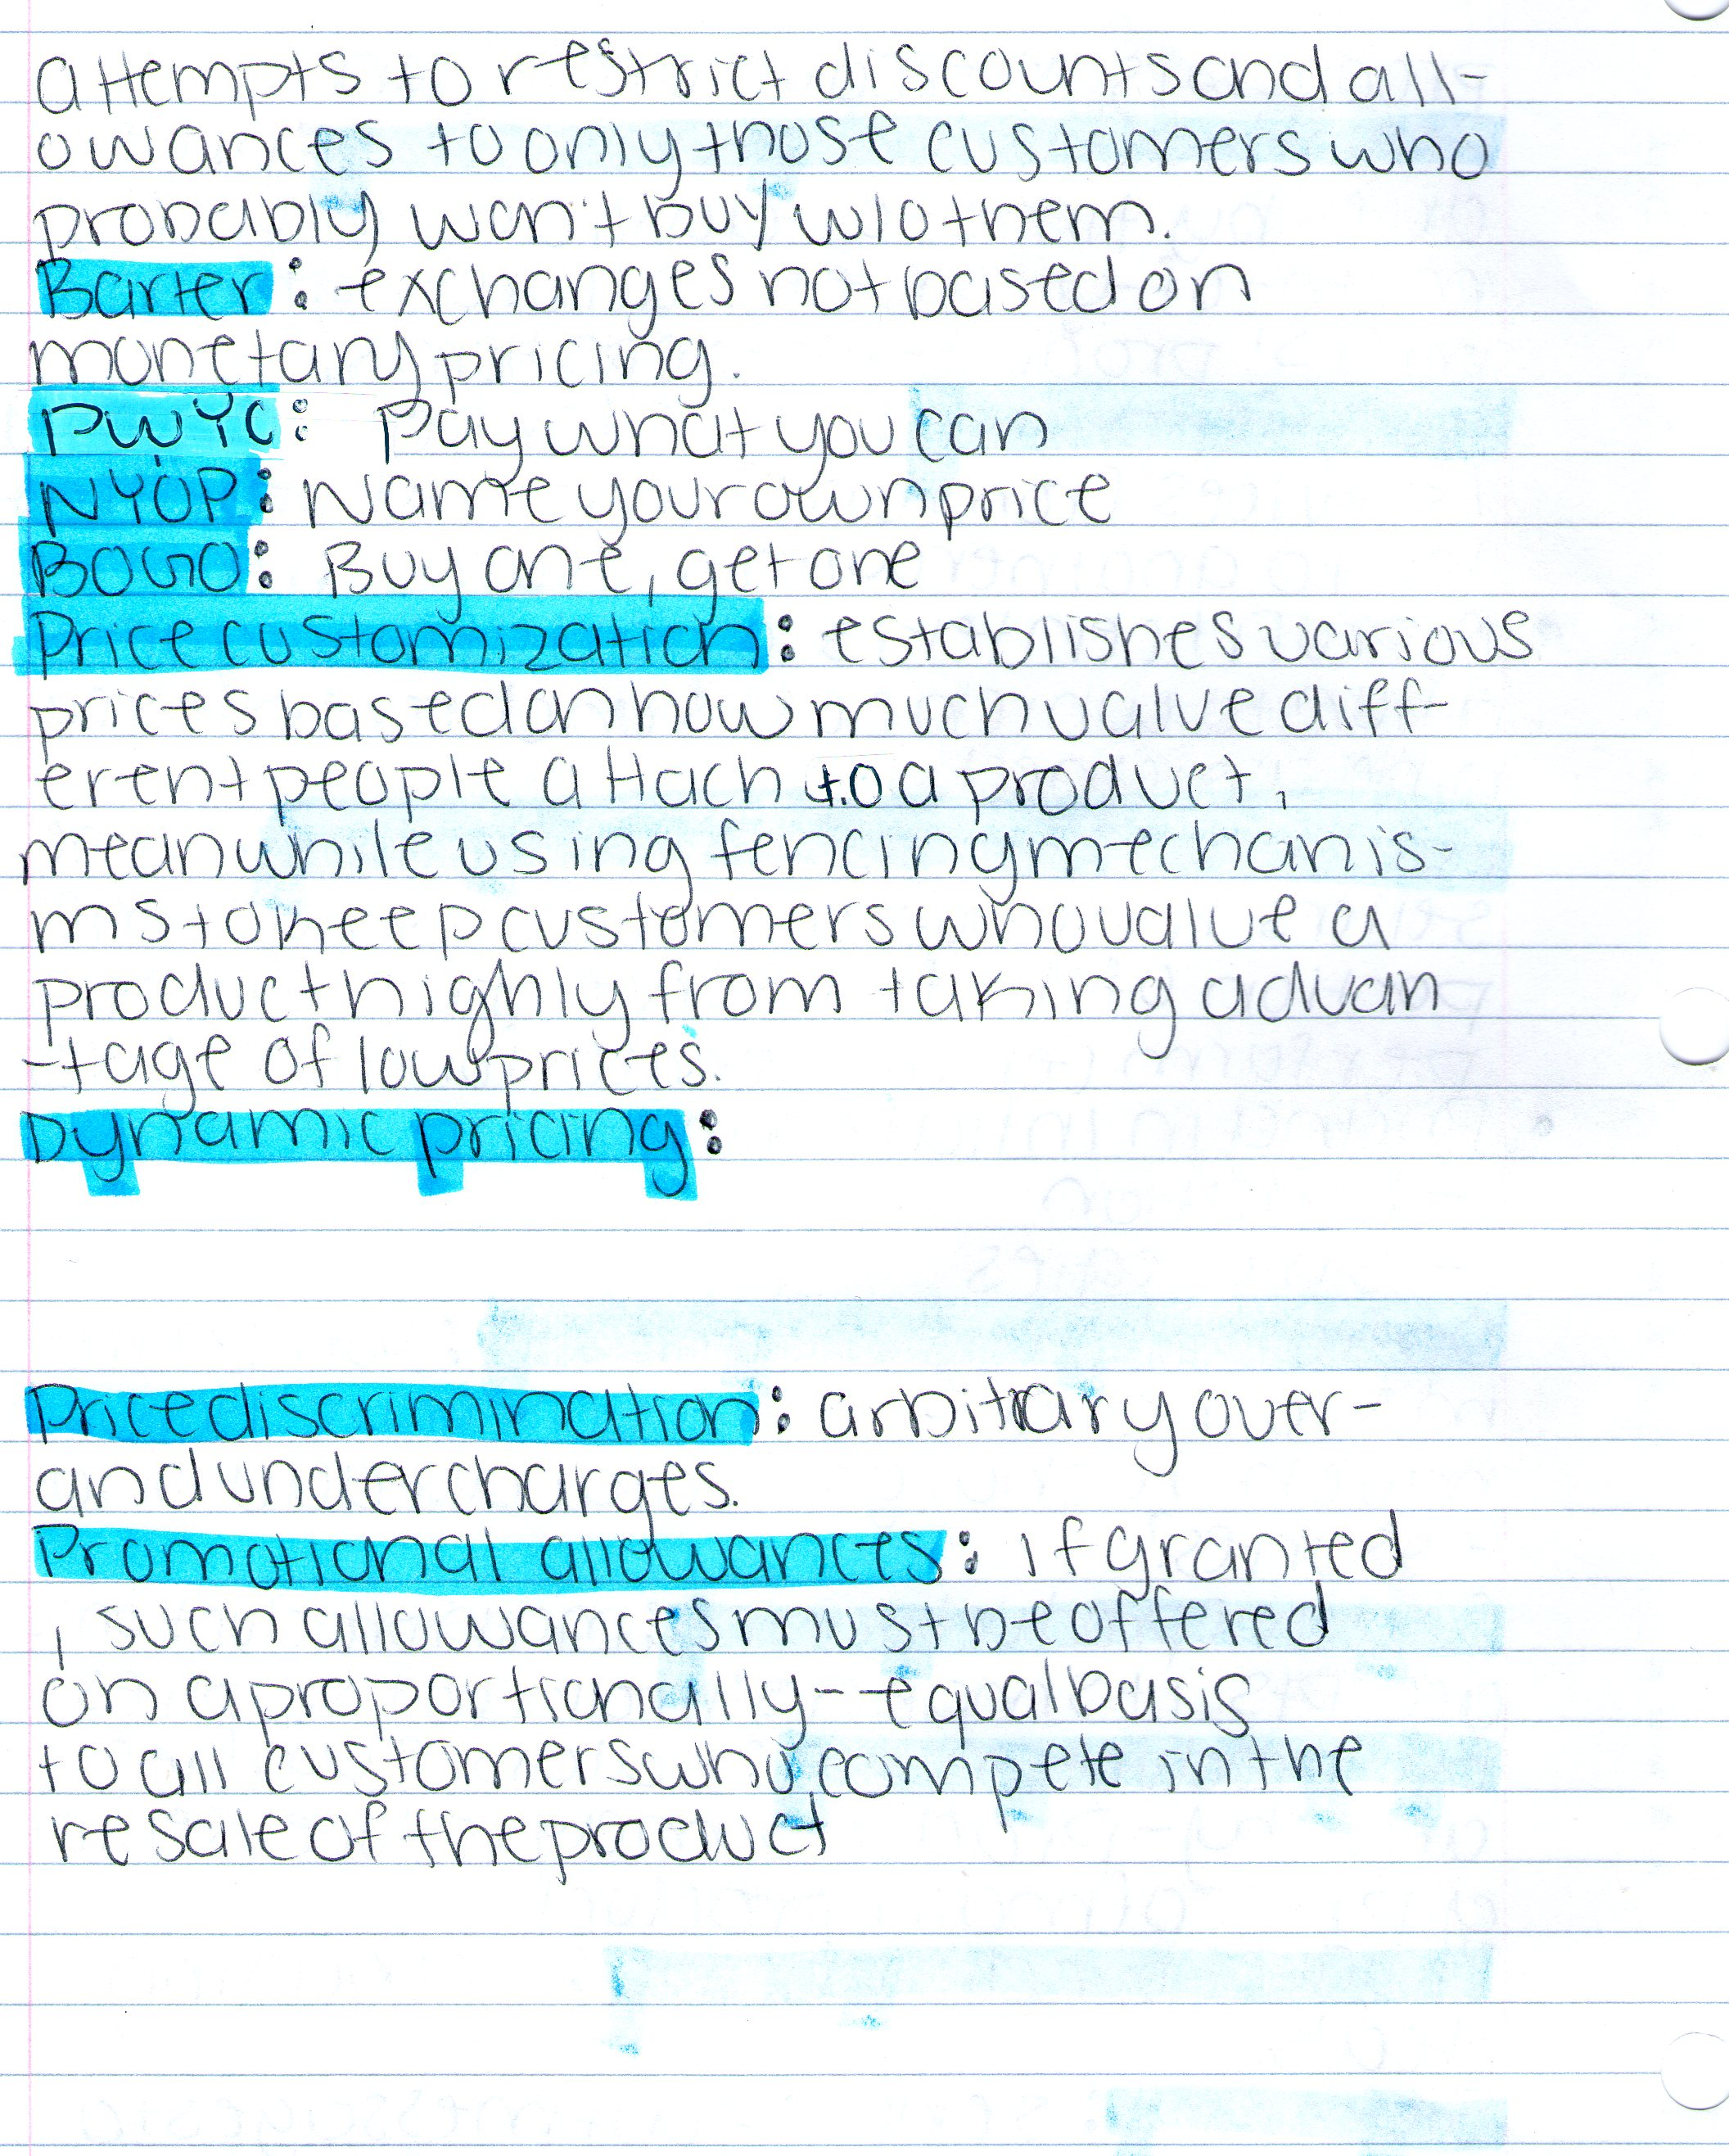 attempts to restrict discounts and all-
owances to only those customers who
probably won't buy w/o them.
Barter: exchanges not based on
monetary pricing.
PWYC: Pay what you can
NYOP: Name your own price
BOGO: Buy one, get one
Price customization: establishes various
prices based on how much value diff-
erent people attach to a product,
meanwhile using fencing mechanis-
ms to keep customers who value a
product highly from taking advan
-tage of low prices.
Dynamic pricing:
Price discrimination: arbitrary over-
and undercharges.
Promotional allowances: if granted
, such allowances must be offered
on a proportionally--equal basis
to all customers who compete in the
resale of the product